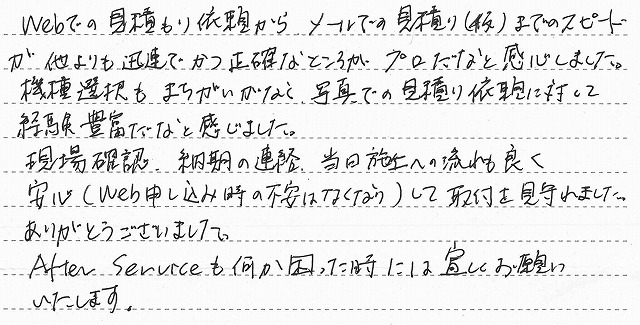 Webでの見積もり依頼から メールでの見積り(仮)までのスピード
が 他よりも迅速でかつ正確なところが プロだなと感心しました。
機種選択も まちがいがなく、写真での見積り依頼に対して
経験豊富だなと感じました。
現場確認、納期の連絡、当日施工への流れも良く
安心(Web申し込み時の不安はなくなり)して 取付を見守れました。
ありがとうございました。
After Serviceも何か困った時には宜しくお願い
いたします。